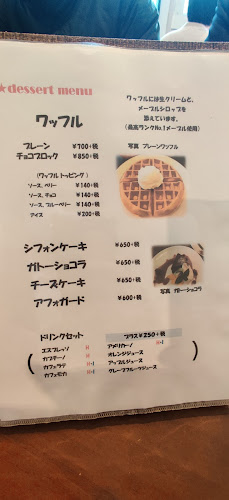 ★dessert menu
ワッフルには生クリームと、
メープルシロップを
添えています。
(最高ランクNo.1メープル使用)
ワッフル
プレーン ¥700+税
チョコブロック ¥850+税
写真 プレーンワッフル
(ワッフルトッピング)
ソース、ベリー ¥140+税
ソース、チョコ ¥140+税
ソース、ブルーベリー ¥140+税
アイス ¥200+税
シフォンケーキ ¥650+税
ガトーショコラ ¥650+税
チーズケーキ ¥650+税
アフォガード ¥600+税
写真 ガトーショコラ
ドリンクセット プラス¥250+税
エスプレッソ H
カプチーノ H
カフェラテ H・I
カフェモカ H・I
アメリカーノ H・I
オレンジジュース
アップルジュース
グレープフルーツジュース